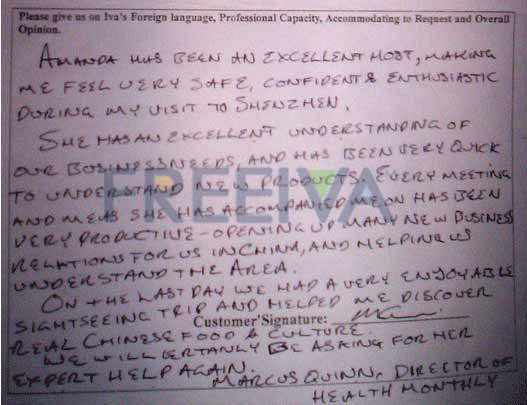 Please give us on Iva's Foreign language, Professional Capacity, Accommodating to Request and Overall
Opinion.
AMANDA HAS BEEN AN EXCELLENT HOST, MAKING
ME FEEL VERY SAFE, CONFIDENT & ENTHUSIASTIC
DURING MY VISIT TO SHENZHEN.
SHE HAS AN EXCELLENT UNDERSTANDING OF
OUR BUSINESS NEEDS, AND HAS BEEN VERY QUICK
TO UNDERSTAND NEW PRODUCTS. EVERY MEETING
FREEIVA
AND MEAS SHE HAS ACCOMPANIED ME ON HAS BEEN
VERY PRODUCTIVE - OPENING UP MANY NEW BUSINESS
RELATIONS FOR US IN CHINA, AND HELPING US
UNDERSTAND THE AREA.
ON THE LAST DAY WE HAD A VERY ENJOYABLE
SIGHTSEEING TRIP AND HELPED ME DISCOVER
Customer'Signature:
REAL CHINESE FOOD & CULTURE.
WE WILL CERTANLY BE ASKING FOR HER
EXPERT HELP AGAIN.
MARCUS QUINN, DIRECTOR OF
HEALTH MONTHLY